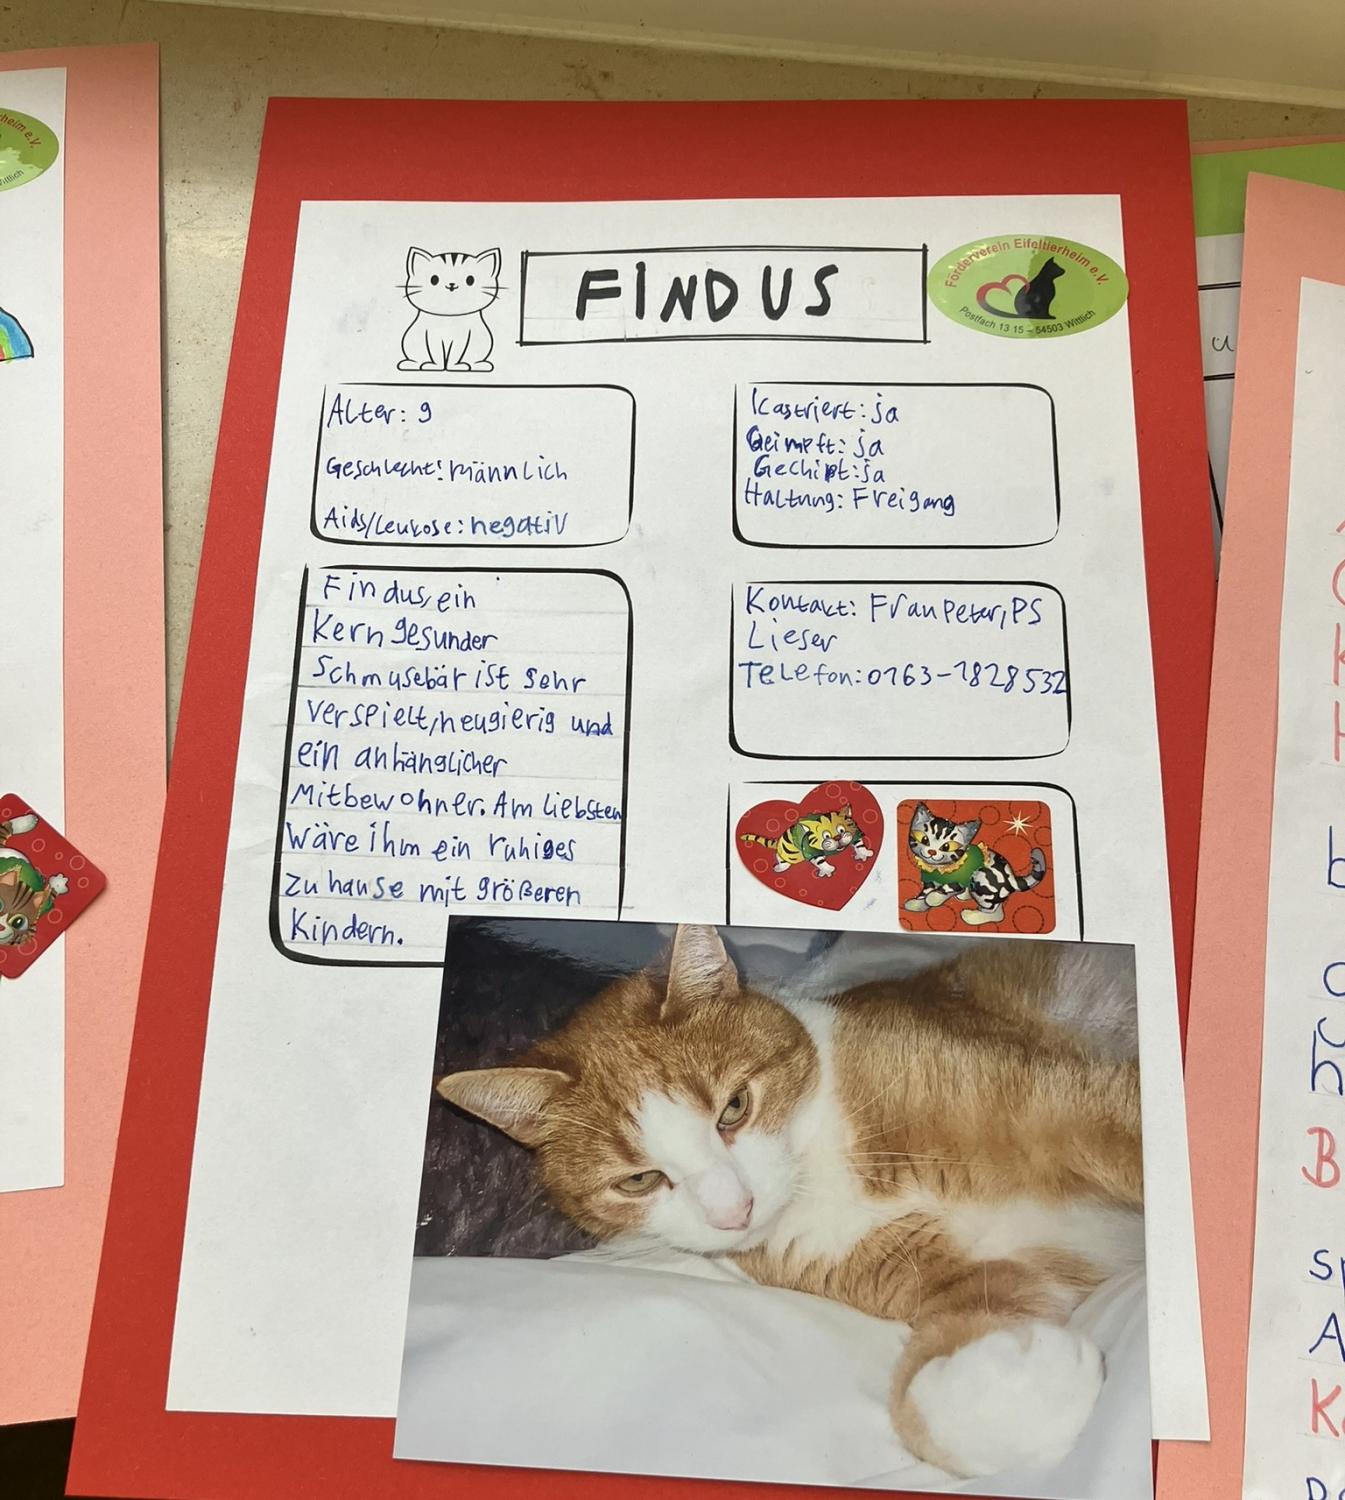 FINDUS
Förderverein Eifeltierheim e.V.
Postfach 13 15 – 54503 Wittlich
Alter: 9
Geschlecht: männlich
Aids/Leukose: negativ
Kastriert: ja
Geimpft: ja
Gechipt: ja
Haltung: Freigang
Findus, ein
Kerngesunder
Schmusebär ist sehr
verspielt, neugierig und
ein anhänglicher
Mitbewohner. Am liebsten
wäre ihm ein ruhiges
zuhause mit größeren
Kindern.
Kontakt: Frau Peter, PS
Lieser
Telefon: 0163-1828532
heim e.V.
Wittlich